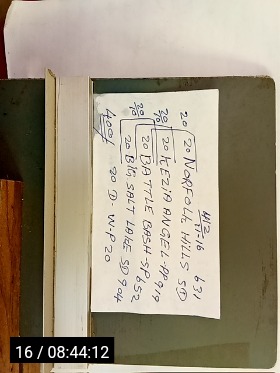 H/2
T1=16 631
20 20 NORFOLK HILLS SD
20/10 20 KEZIA ANGEL-PP 919
20/10 20 BATTLE BASH-SP 652
20 BIG SALT LAKE SD 904
400/
20 D-W-P 20
16 / 08:44:12